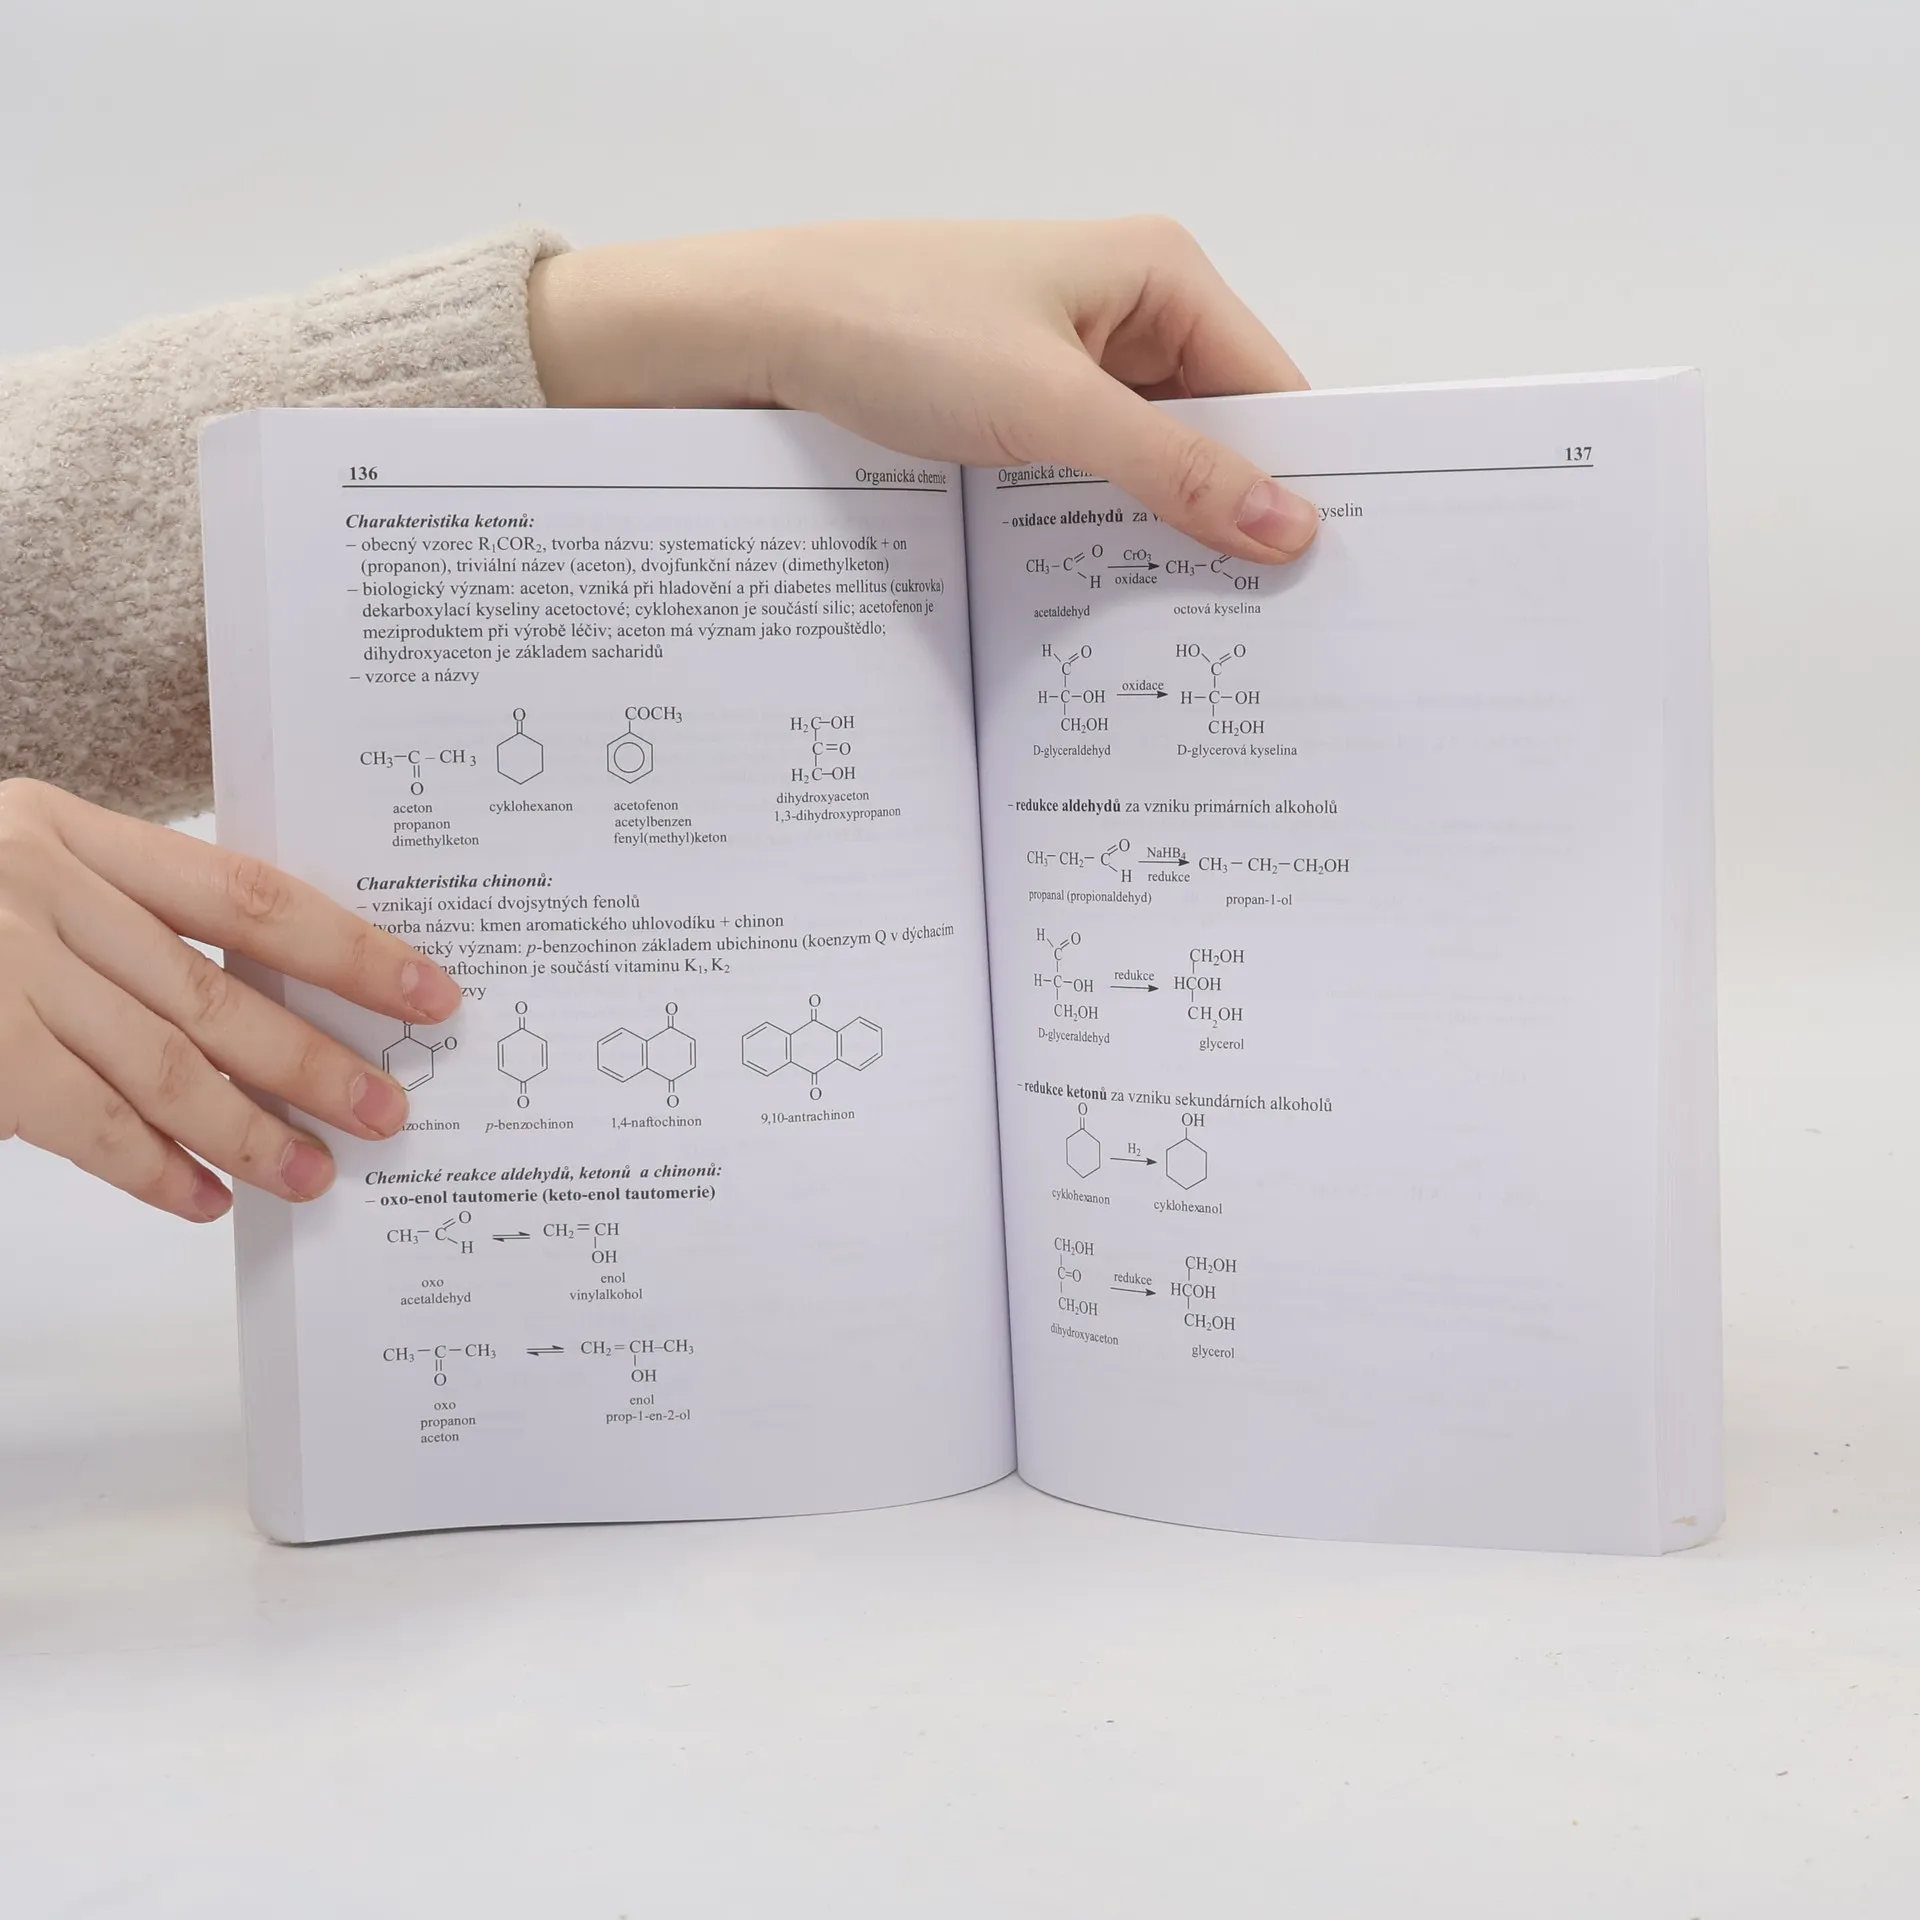 136
Organická chemie
Charakteristika ketonů:
– obecný vzorec R₁COR₂, tvorba názvu: systematický název: uhlovodík + on
(propanon), triviální název (aceton), dvojfunkční název (dimethylketon)
– biologický význam: aceton, vzniká při hladovění a při diabetes mellitus (cukrovka)
dekarboxylací kyseliny acetoctové; cyklohexanon je součástí silic; acetofenon je
meziproduktem při výrobě léčiv; aceton má význam jako rozpouštědlo;
dihydroxyaceton je základem sacharidů
– vzorce a názvy
CH₃–C–CH₃
O
aceton
propanon
dimethylketon
O
cyklohexanon
COCH₃
acetofenon
acetylbenzen
fenyl(methyl)keton
H₂C–OH
C=O
H₂C–OH
dihydroxyaceton
1,3-dihydroxypropanon
Charakteristika chinonů:
– vznikají oxidací dvojsytných fenolů
názvu: kmen aromatického uhlovodíku + chinon
význam: p-benzochinon základem ubichinonu (koenzym Q v dýchacím
je součástí vitaminu K₁, K₂
O
O
O
p-benzochinon
O
O
1,4-naftochinon
O
O
9,10-antrachinon
Chemické reakce aldehydů, ketonů a chinonů:
– oxo-enol tautomerie (keto-enol tautomerie)
CH₃–C
O
H
⇌
CH₂=CH
OH
oxo
acetaldehyd
enol
vinylalkohol
CH₃–C–CH₃
O
⇌
CH₂=CH–CH₃
OH
oxo
propanon
aceton
enol
prop-1-en-2-ol
Organická
137
– oxidace aldehydů za
CH₃–C
O
H
CrO₃
oxidace
CH₃–C
OH
acetaldehyd
octová kyselina
H
O
C
H–C–OH
CH₂OH
oxidace
HO
O
C
H–C–OH
CH₂OH
D-glyceraldehyd
D-glycerová kyselina
– redukce aldehydů za vzniku primárních alkoholů
CH₃–CH₂–C
O
H
NaHB₄
redukce
CH₃–CH₂–CH₂OH
propanal (propionaldehyd)
propan-1-ol
H
O
C
H–C–OH
CH₂OH
redukce
CH₂OH
HCOH
CH₂OH
D-glyceraldehyd
glycerol
– redukce ketonů za vzniku sekundárních alkoholů
O
H₂
OH
cyklohexanon
cyklohexanol
CH₂OH
C=O
CH₂OH
redukce
CH₂OH
HCOH
CH₂OH
dihydroxyaceton
glycerol